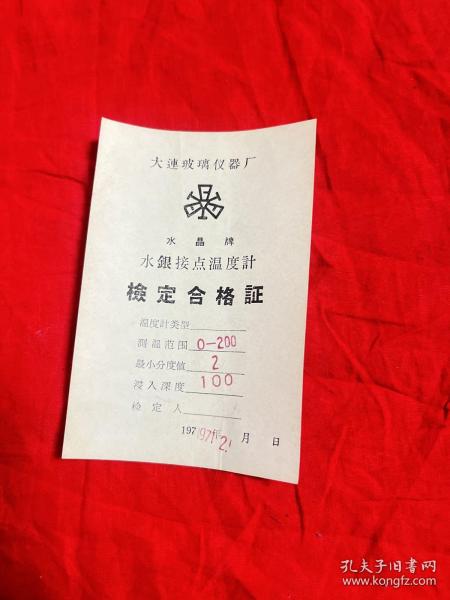 大連玻璃仪器厂
水晶牌
水銀接点温度計
檢定合格証
温度計类型
測温范围 0-200
最小分度值 2
浸入深度 100
檢定人
197 年 月 日
1971.2.
孔夫子旧书网
www.kongfz.com